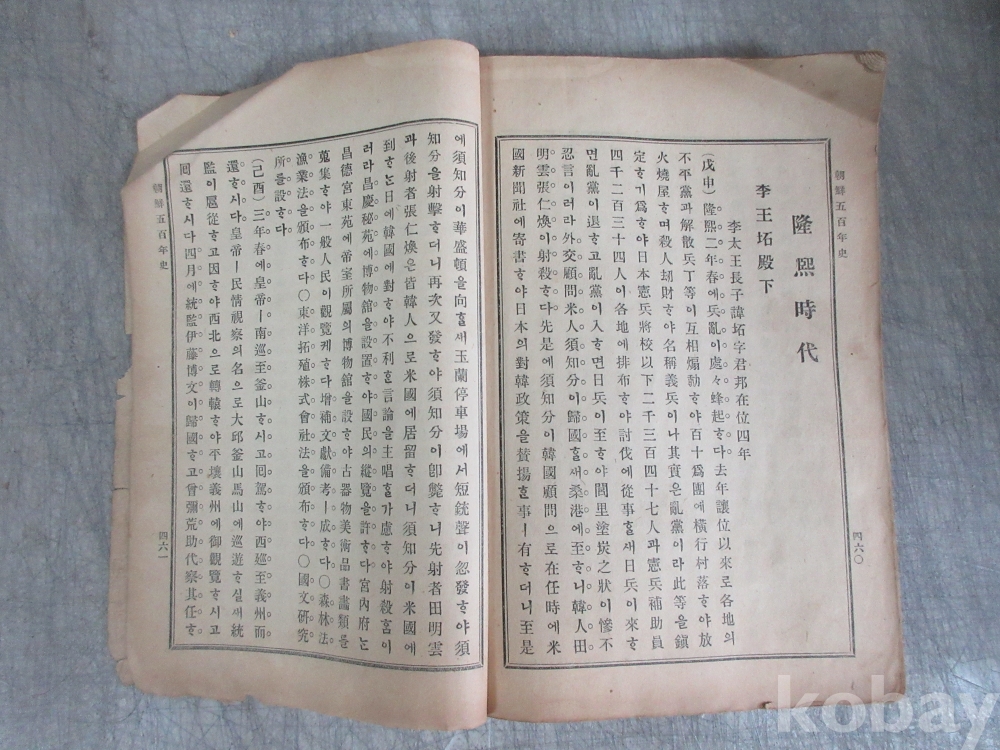 朝鮮五百年史
隆熙時代
李王坧殿下
李太王長子諱坧字君邦在位四年
(戊申)隆熙二年春에兵亂이處々蜂起ᄒᆞ다去年讓位以來로各地의
不平黨과解散兵丁等이互相煽動ᄒᆞ야百十爲團에橫行村落ᄒᆞ야放
火燒屋ᄒᆞ며殺人刧財ᄒᆞ야名稱義兵이나其實은亂黨이라此等을鎭
定ᄒᆞ기爲ᄒᆞ야日本憲兵將校以下二千三百四十七人과憲兵補助員
四千二百三十四人이各地에排布ᄒᆞ야討伐에從事ᄒᆞᆯᄉᆡ日兵이來ᄒᆞ
면亂黨이退ᄒᆞ고亂黨이入ᄒᆞ면日兵이至ᄒᆞ야閭里塗炭之狀이慘不
忍言이러라外交顧問米人須知分이歸國ᄒᆞᆯᄉᆡ桑港에至ᄒᆞ니韓人田
明雲張仁煥이射殺ᄒᆞ다先是에須知分이韓國顧問으로在任時에米
國新聞社에寄書ᄒᆞ야日本의對韓政策을賛揚ᄒᆞᆫ事ㅣ有ᄒᆞ더니至是
四六〇
에須知分이華盛頓을向ᄒᆞᆯᄉᆡ玉蘭停車場에서短銃聲이忽發ᄒᆞ야須
知分을射擊ᄒᆞ더니再次又發ᄒᆞ야須知分이卽斃ᄒᆞ니先射者田明雲
과後射者張仁煥은皆韓人으로米國에居留ᄒᆞ더니須知分이米國에
到ᄒᆞᄂᆞᆫ日에韓國에對ᄒᆞ야不利ᄒᆞᆫ言論을主唱ᄒᆞᆯ가慮ᄒᆞ야射殺홈이
러라昌慶秘苑에博物館을設置ᄒᆞ야國民의縱覽을許ᄒᆞ다宮內府ᄂᆞᆫ
昌德宮東苑에帝室所屬의博物館을設ᄒᆞ야古器物美術品書畵類를
蒐集ᄒᆞ야一般人民이觀覽케ᄒᆞ다增補文獻備考ㅣ成ᄒᆞ다〇森林法
漁業法을頒布ᄒᆞ다〇東洋拓殖株式會社法을頒布ᄒᆞ다〇國文硏究
所를設ᄒᆞ다
(己酉)三年春에皇帝ㅣ南巡至釜山ᄒᆞ시고回駕ᄒᆞ야西巡至義州而
還ᄒᆞ시다皇帝ㅣ民情視察의名으로大邱釜山馬山에巡遊ᄒᆞ실ᄉᆡ統
監이扈從ᄒᆞ고因ᄒᆞ야西北으로轉轅ᄒᆞ야平壤義州에御觀覽ᄒᆞ시고
回還ᄒᆞ시다四月에統監伊藤博文이歸國ᄒᆞ고曾彌荒助代察其任ᄒᆞ
朝鮮五百年史
四六一
kobay